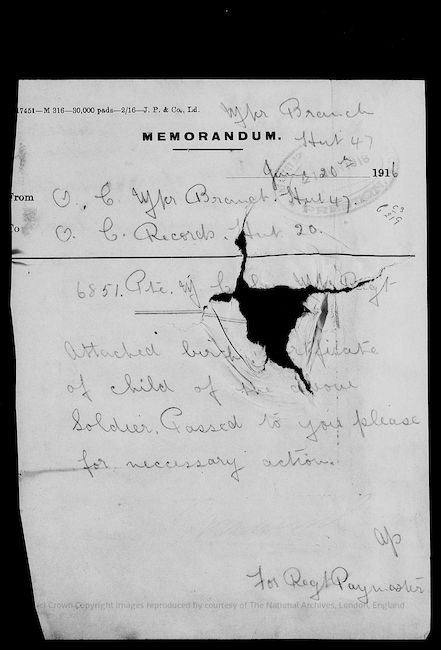 17451—M 316—30,000 pads—2/16—J. P. & Co., Ld.
Branch
MEMORANDUM.
Hut 47
20th 1916
From O. C. Branch. Hut 47.
To O. C. Records. Hut 20.
6851. Pte. Regt
Attached birth certificate
of child of the above
Soldier. Passed to you please
for neccessary action.
For Regtl Paymaster
(c) Crown Copyright Images reproduced by courtesy of The National Archives, London, England